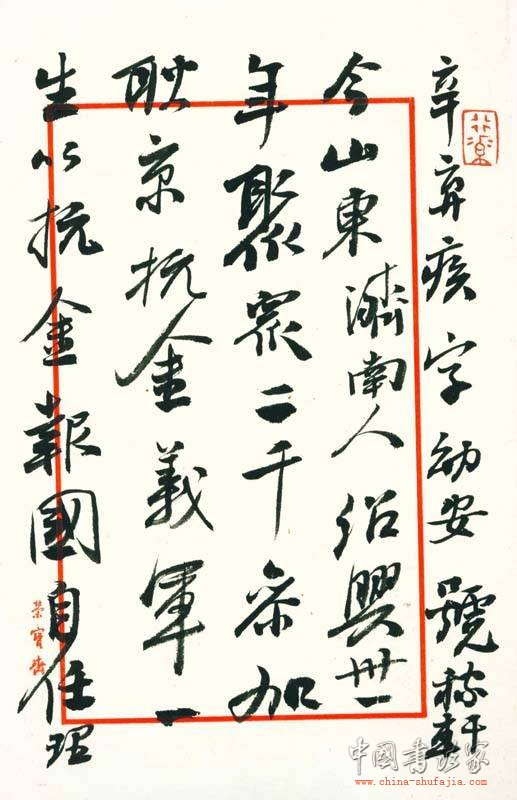 辛弃疾字幼安號稼軒
今山東濟南人绍興卅一
年聚眾二千参加
耿京抗金義軍一
生以抗金報國自任理
榮寶齋
中國書法家
www.china-shufajia.com